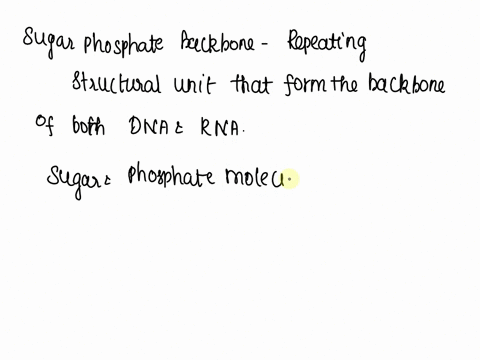 Sugar phosphate Backbone - Repeating
structural unit that form the backbone
Of both DNA & RNA.
Sugar & phosphate molecu